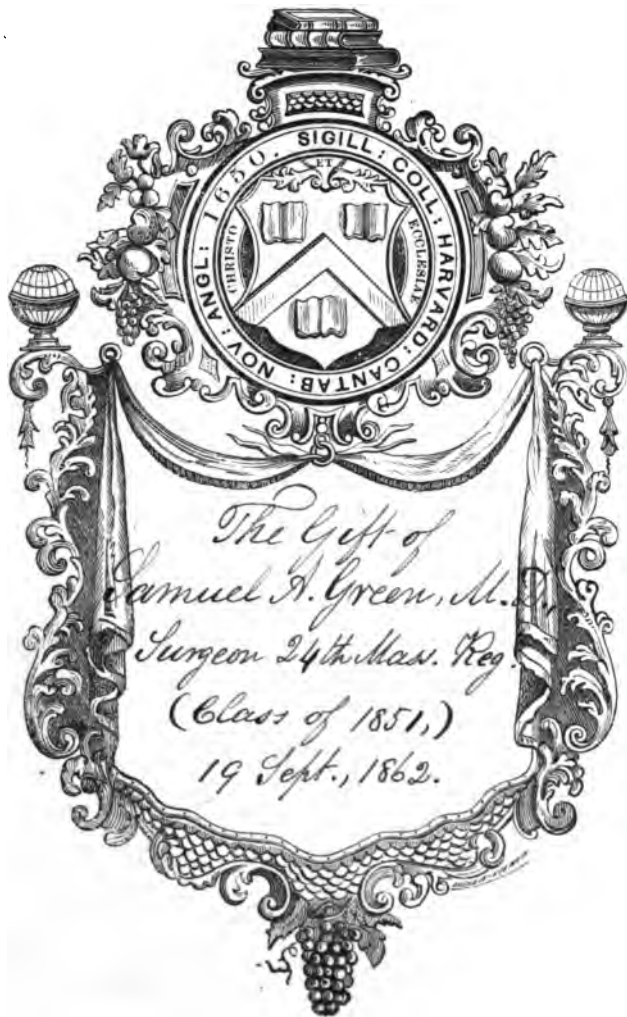 SIGILL: COLL: HARVARD: CANTAB: NOV: ANGL: 1650.
ET
CHRISTO
ECCLESIAE
The Gift of
Samuel A. Green, M.D.,
Surgeon 24th Mass. Reg.
(Class of 1851,)
19 Sept., 1862.